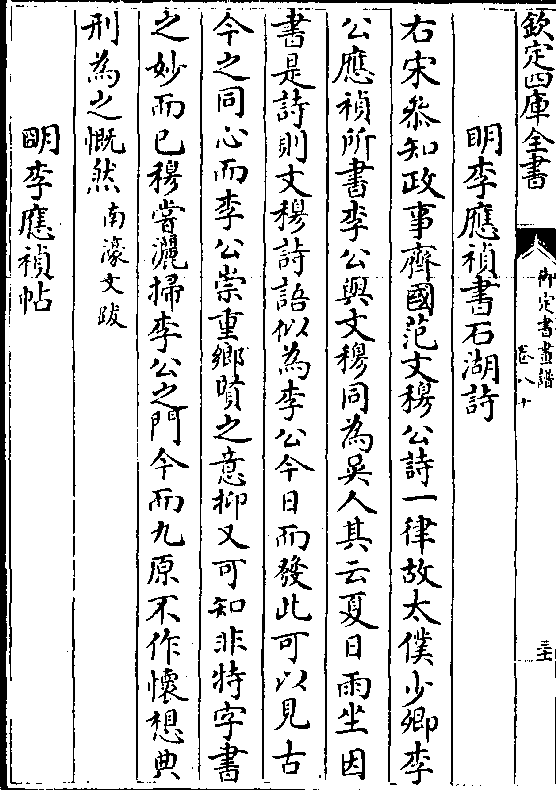 欽定四庫全書
御定書畫譜
卷八十
明李應禎書石湖詩
右宋叅知政事齊國范文穆公詩一律故太僕少卿李
公應禎所書李公與文穆同為吳人其云夏日雨坐因
書是詩則文穆詩語似為李公今日而發此可以見古
今之同心而李公崇重鄉賢之意抑又可知非特字書
之妙而已穆嘗灑掃李公之門今而九原不作懷想典
刑為之慨然南濠文跋
明李應禎帖